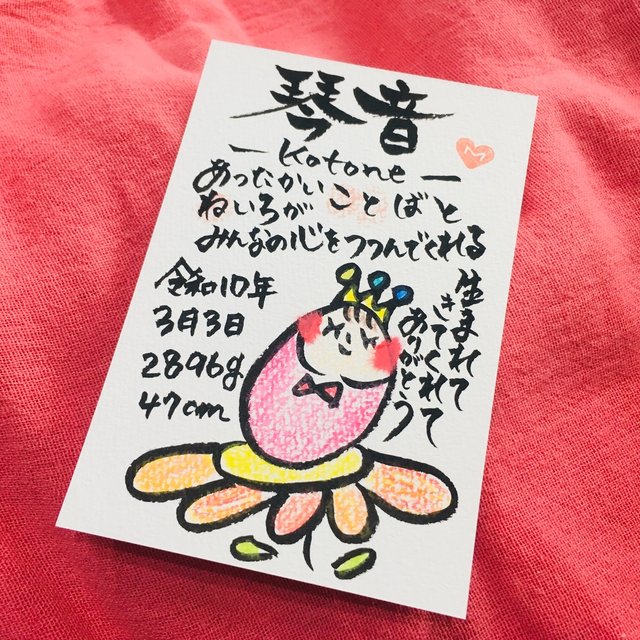 琴音
— Kotone —
M
あったかいことばと
ねいろが
みんなの心をつつんでくれる
令和10年
3月3日
2896g
47cm
生まれて
きてくれて
ありがとう